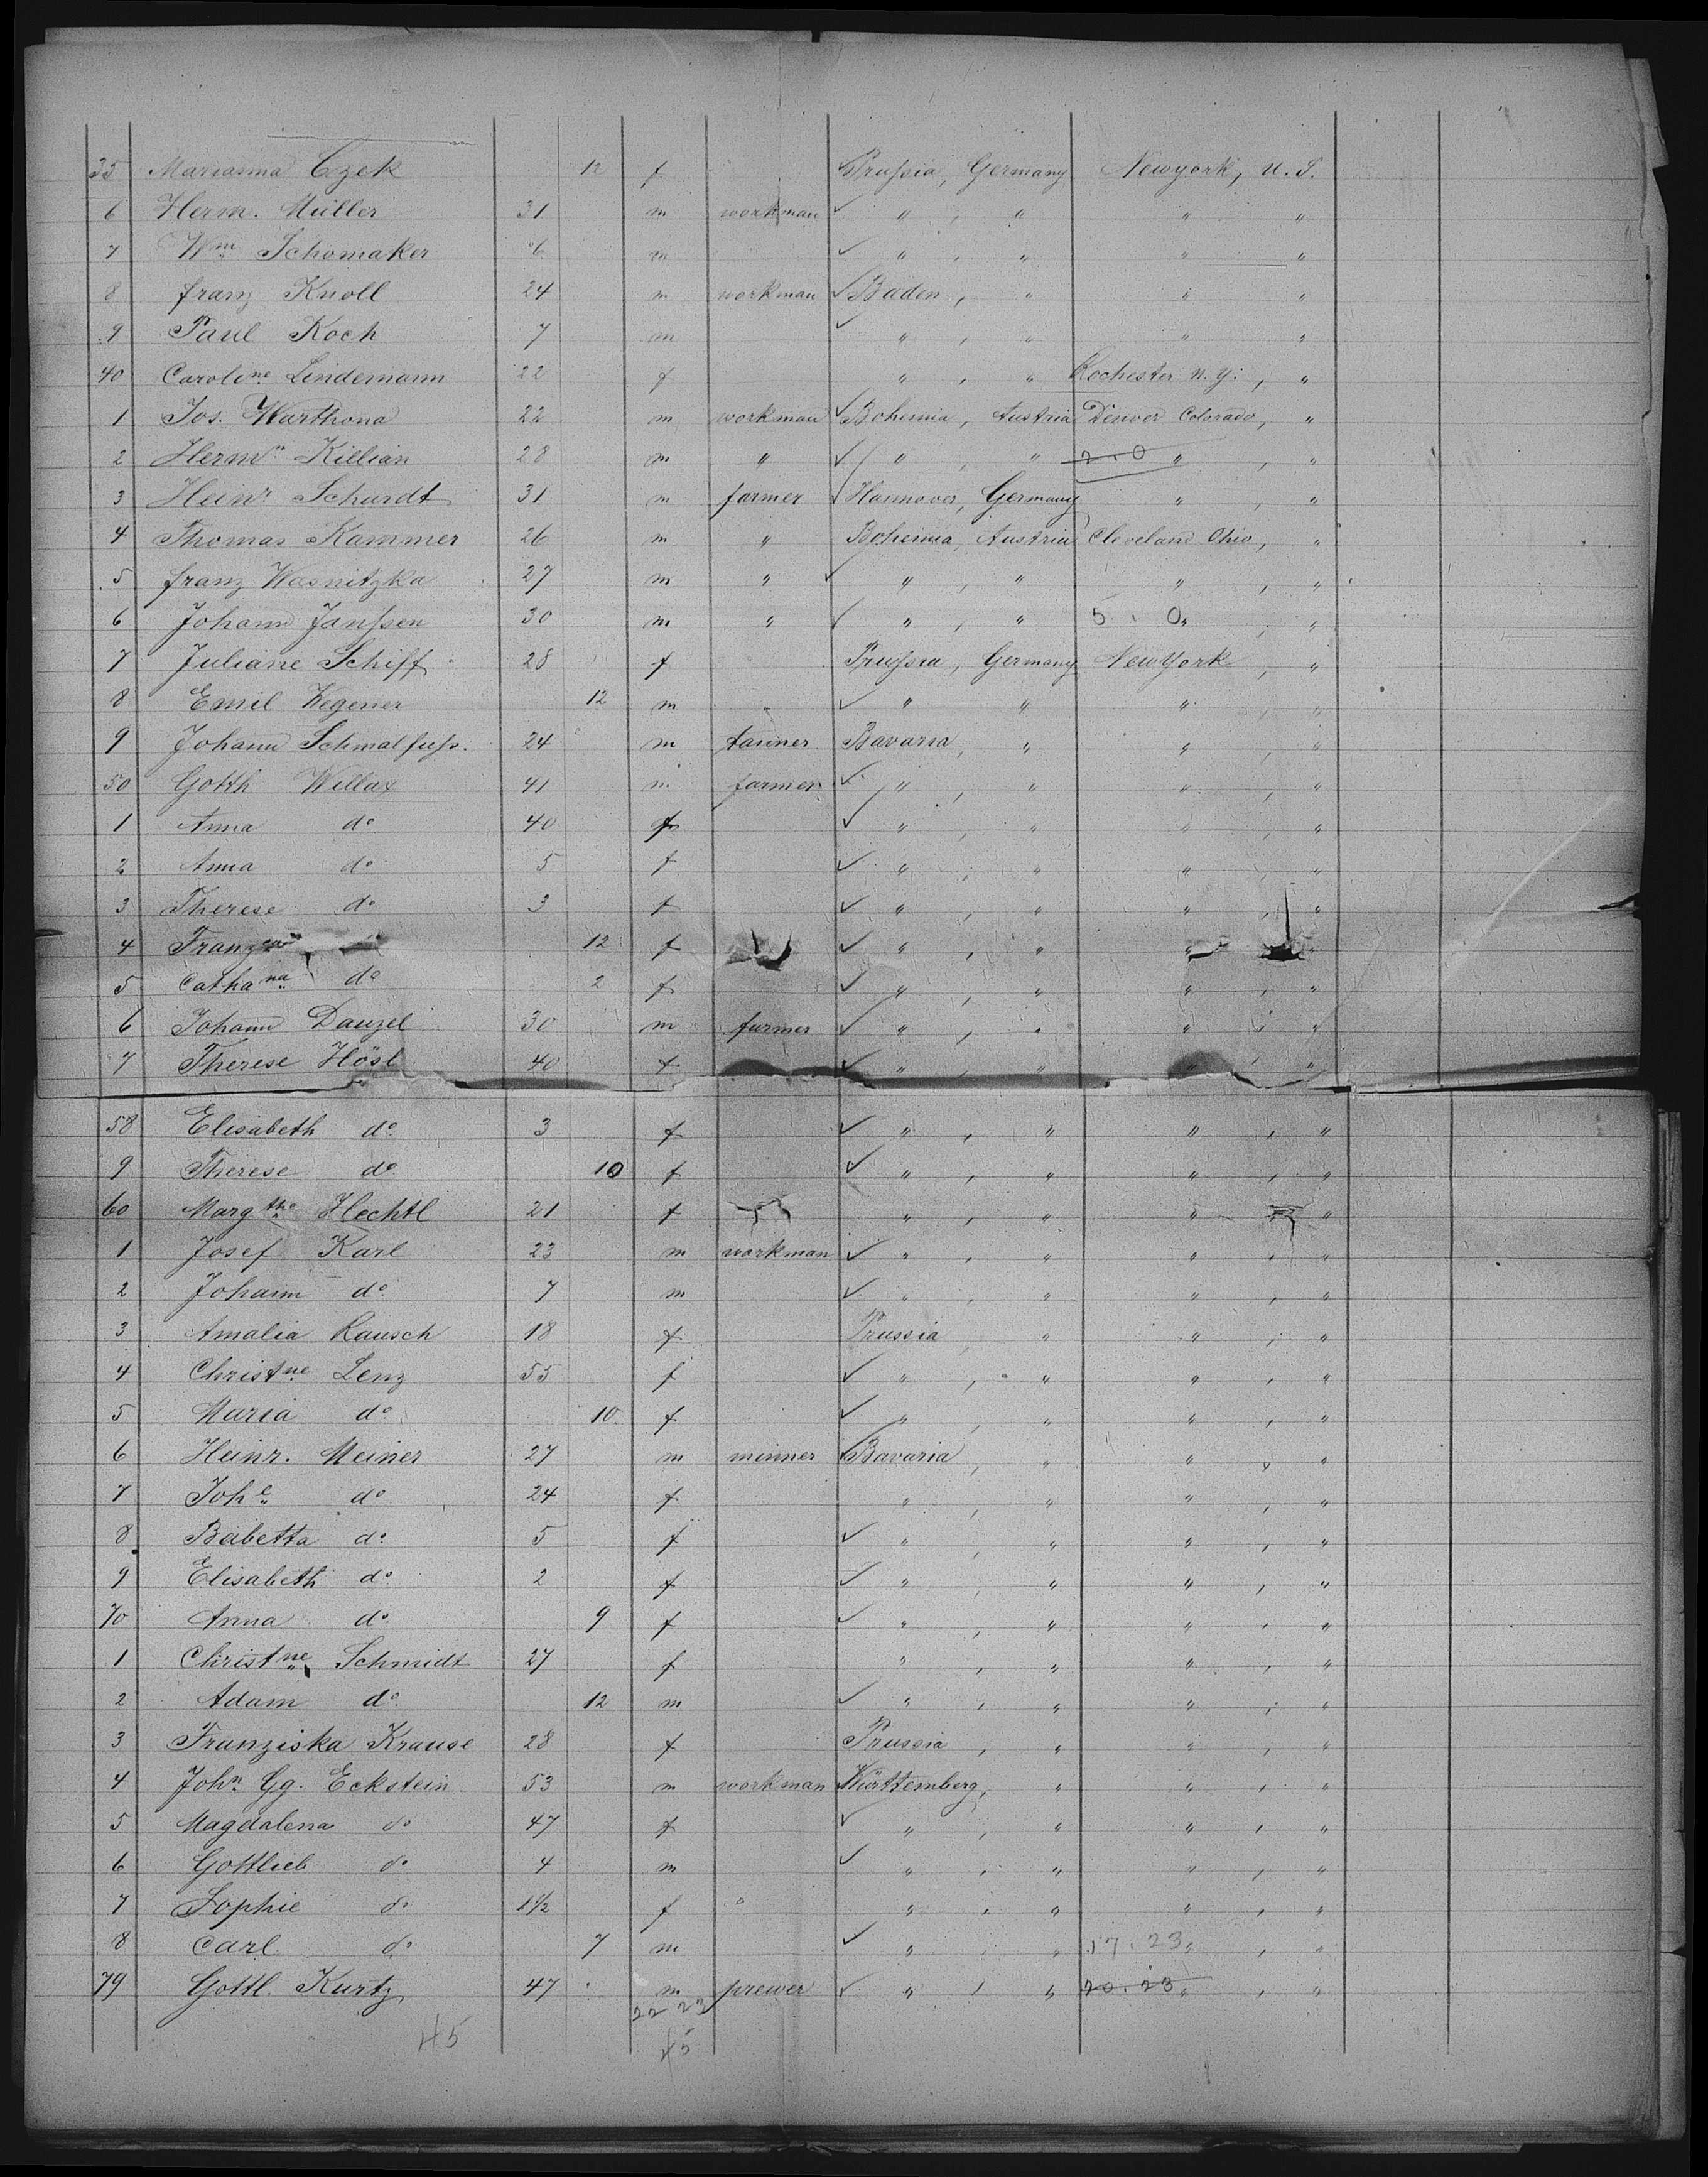 35 Marianna Czek 12 f Prußia, Germany Newyork, U.S.
6 Herm. Müller 31 m workman " , " " "
7 Wm Schomaker 6 m " , " " "
8 franz Knoll 24 m workman Baden, " " "
9 Paul Koch 7 m " , " " "
40 Caroline Lindemann 22 f " , " Rochester N.Y. , "
1 Jos. Warthona 22 m workman Bohemia, Austria Denver Colorado, "
2 Hermn Killian 28 m " " , " 2.0 " , "
3 Heinr Schurdt 31 m farmer Hannover, Germany " , "
4 Thomas Kammer 26 m " Bohemia, Austria Cleveland Ohio, "
5 franz Wasnitzka 27 m " " , " " , "
6 Johann Janßen 30 m " " , " 5.0 " , "
7 Juliane Schiff 28 f Prußia, Germany New York , "
8 Emil Wegener 12 m " " " , "
9 Johann Schmalfuß. 24 m tanner Bavaria, " " , "
50 Gotth Willax 41 m farmer " , " " , "
1 Anna do 40 f " , " " , "
2 Anna do 5 f " , " " , "
3 Therese do 3 f " , " " , "
4 12 f " , " " "
5 Catha na do 2 f " , " " , "
6 Johann Danzel 30 m farmer " , " " , "
7 Therese Hösl 40 f " , " " , "
58 Elisabeth do 3 f " , " " , "
9 Therese do 10 f " , " " , "
60 Margthe Hechtl 21 f " , " " , "
1 Josef Karl 23 m workman " , " " , "
2 Johann do 7 m " , " " , "
3 Amalia Rausch 18 f Prussia, " " , "
4 Christne Lenz 55 f " , " " , "
5 Maria do 10 f " , " " , "
6 Heinr. Meiner 27 m minner Bavaria, " " , "
7 Johe do 24 f " , " " , "
8 Babetta do 5 f " , " " , "
9 Elisabeth do 2 f " , " " , "
70 Anna do 9 f " , " " , "
1 Christne Schmidt 27 f " , " " , "
2 Adam do 12 m " , " " , "
3 Franziska Krause 28 f Prussia , " " , "
4 John Gg. Eckstein 53 m workman Württemberg, " " , "
5 Magdalena do 47 f " , " " , "
6 Gottlieb do 4 m " , " " , "
7 Sophie do 1½ f " , " " , "
8 Carl do 7 m " , " 57.23 " , "
79 Gottl. Kurtz 47 m prewer " , " 20.23 " , "
22 23
45 45